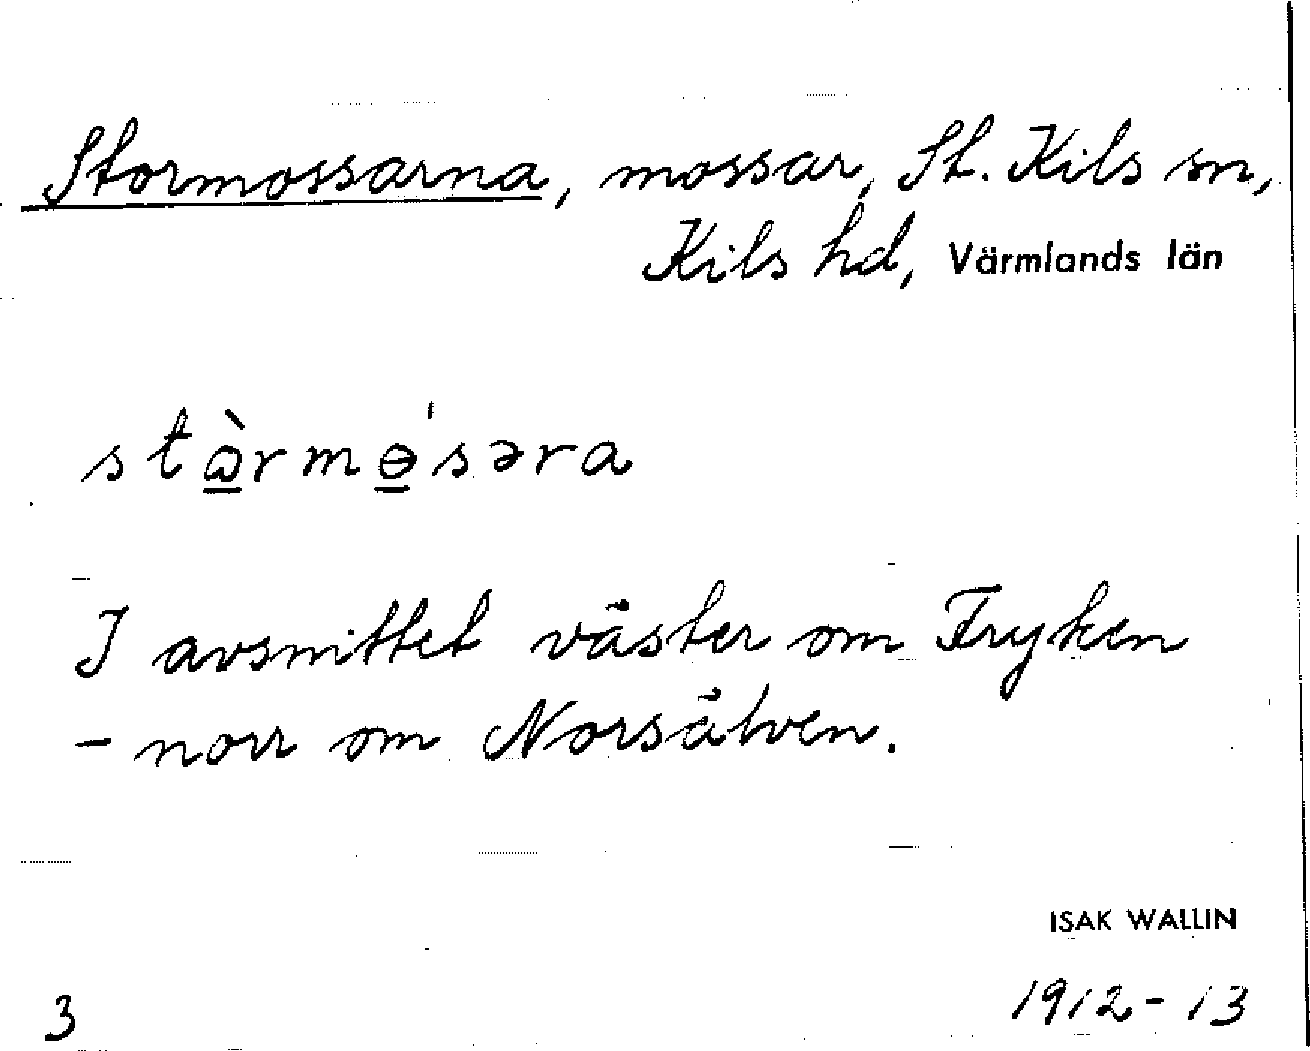 Stormossarna, mossar, St. Kils sn,
Kils hd, Värmlands län
stɷ̲̀rmɵ̲ˈsəra
I avsnittet väster om Fryken
- norr om Norsälven.
ISAK WALLIN
3 1912-13